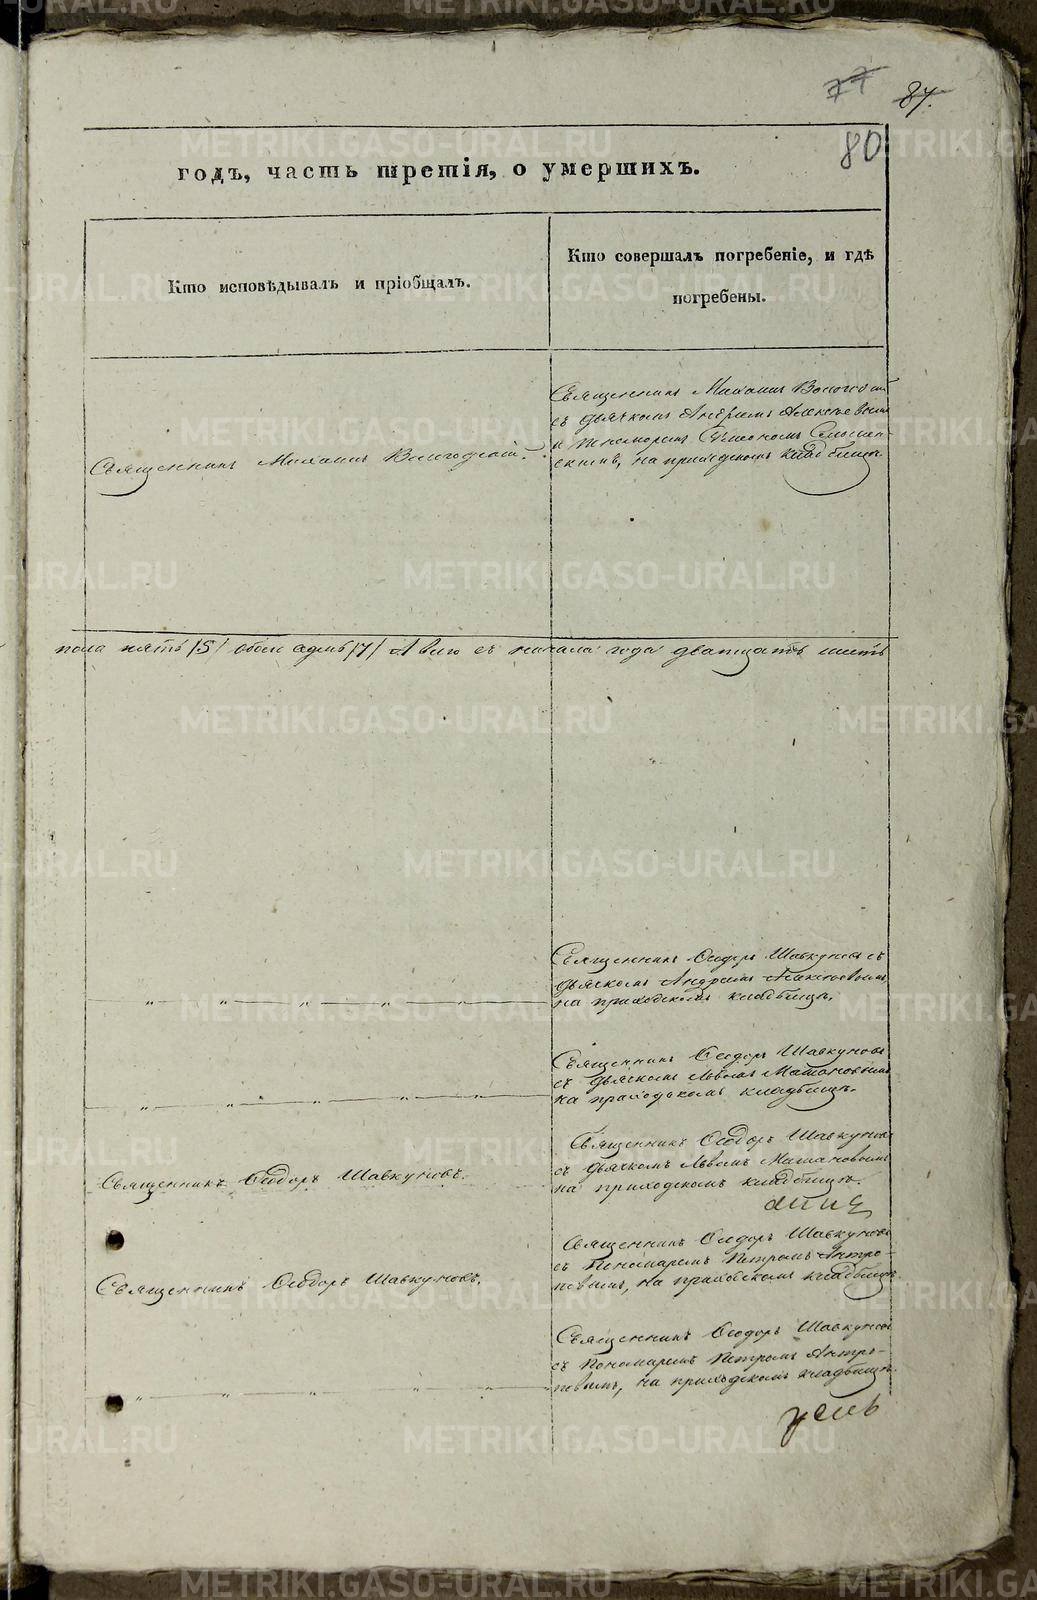 77
87.
80
годъ, часть третія, о умершихъ.
Кто исповѣдывалъ и пріобщалъ.
Кто совершалъ погребеніе, и гдѣ
погребены.
Священникъ Михаилъ Вологодскій.
Священникъ Михаилъ Вологодскій
съ дьячкомъ Андреемъ Алексѣевымъ
и пономаремъ
скимъ, на приходскомъ кладбищѣ.
пола пять /5/ обоего /7/ А всего съ начала года дватцать шесть
Священникъ Ѳеодоръ Шавкуновъ съ
дьячкомъ Андреемъ Алексѣевымъ,
на приходскомъ кладбищѣ.
Священникъ Ѳеодоръ Шавкуновъ
съ дьячкомъ Львомъ
на приходскомъ кладбищѣ.
Священникъ Ѳеодоръ Шавкуновъ.
Священникъ Ѳеодоръ Шавкуновъ
съ дьячкомъ Львомъ
на приходскомъ кладбищѣ.
Священникъ Ѳеодоръ Шавкуновъ.
Священникъ Ѳеодоръ Шавкуновъ
съ Пономаремъ Петромъ Антро-
повымъ, на приходскомъ кладбищѣ.
Священникъ Ѳеодоръ Шавкуновъ
съ Пономаремъ Петромъ Антро-
повымъ, на приходскомъ кладбищѣ.
METRIKI.GASO-URAL.RU